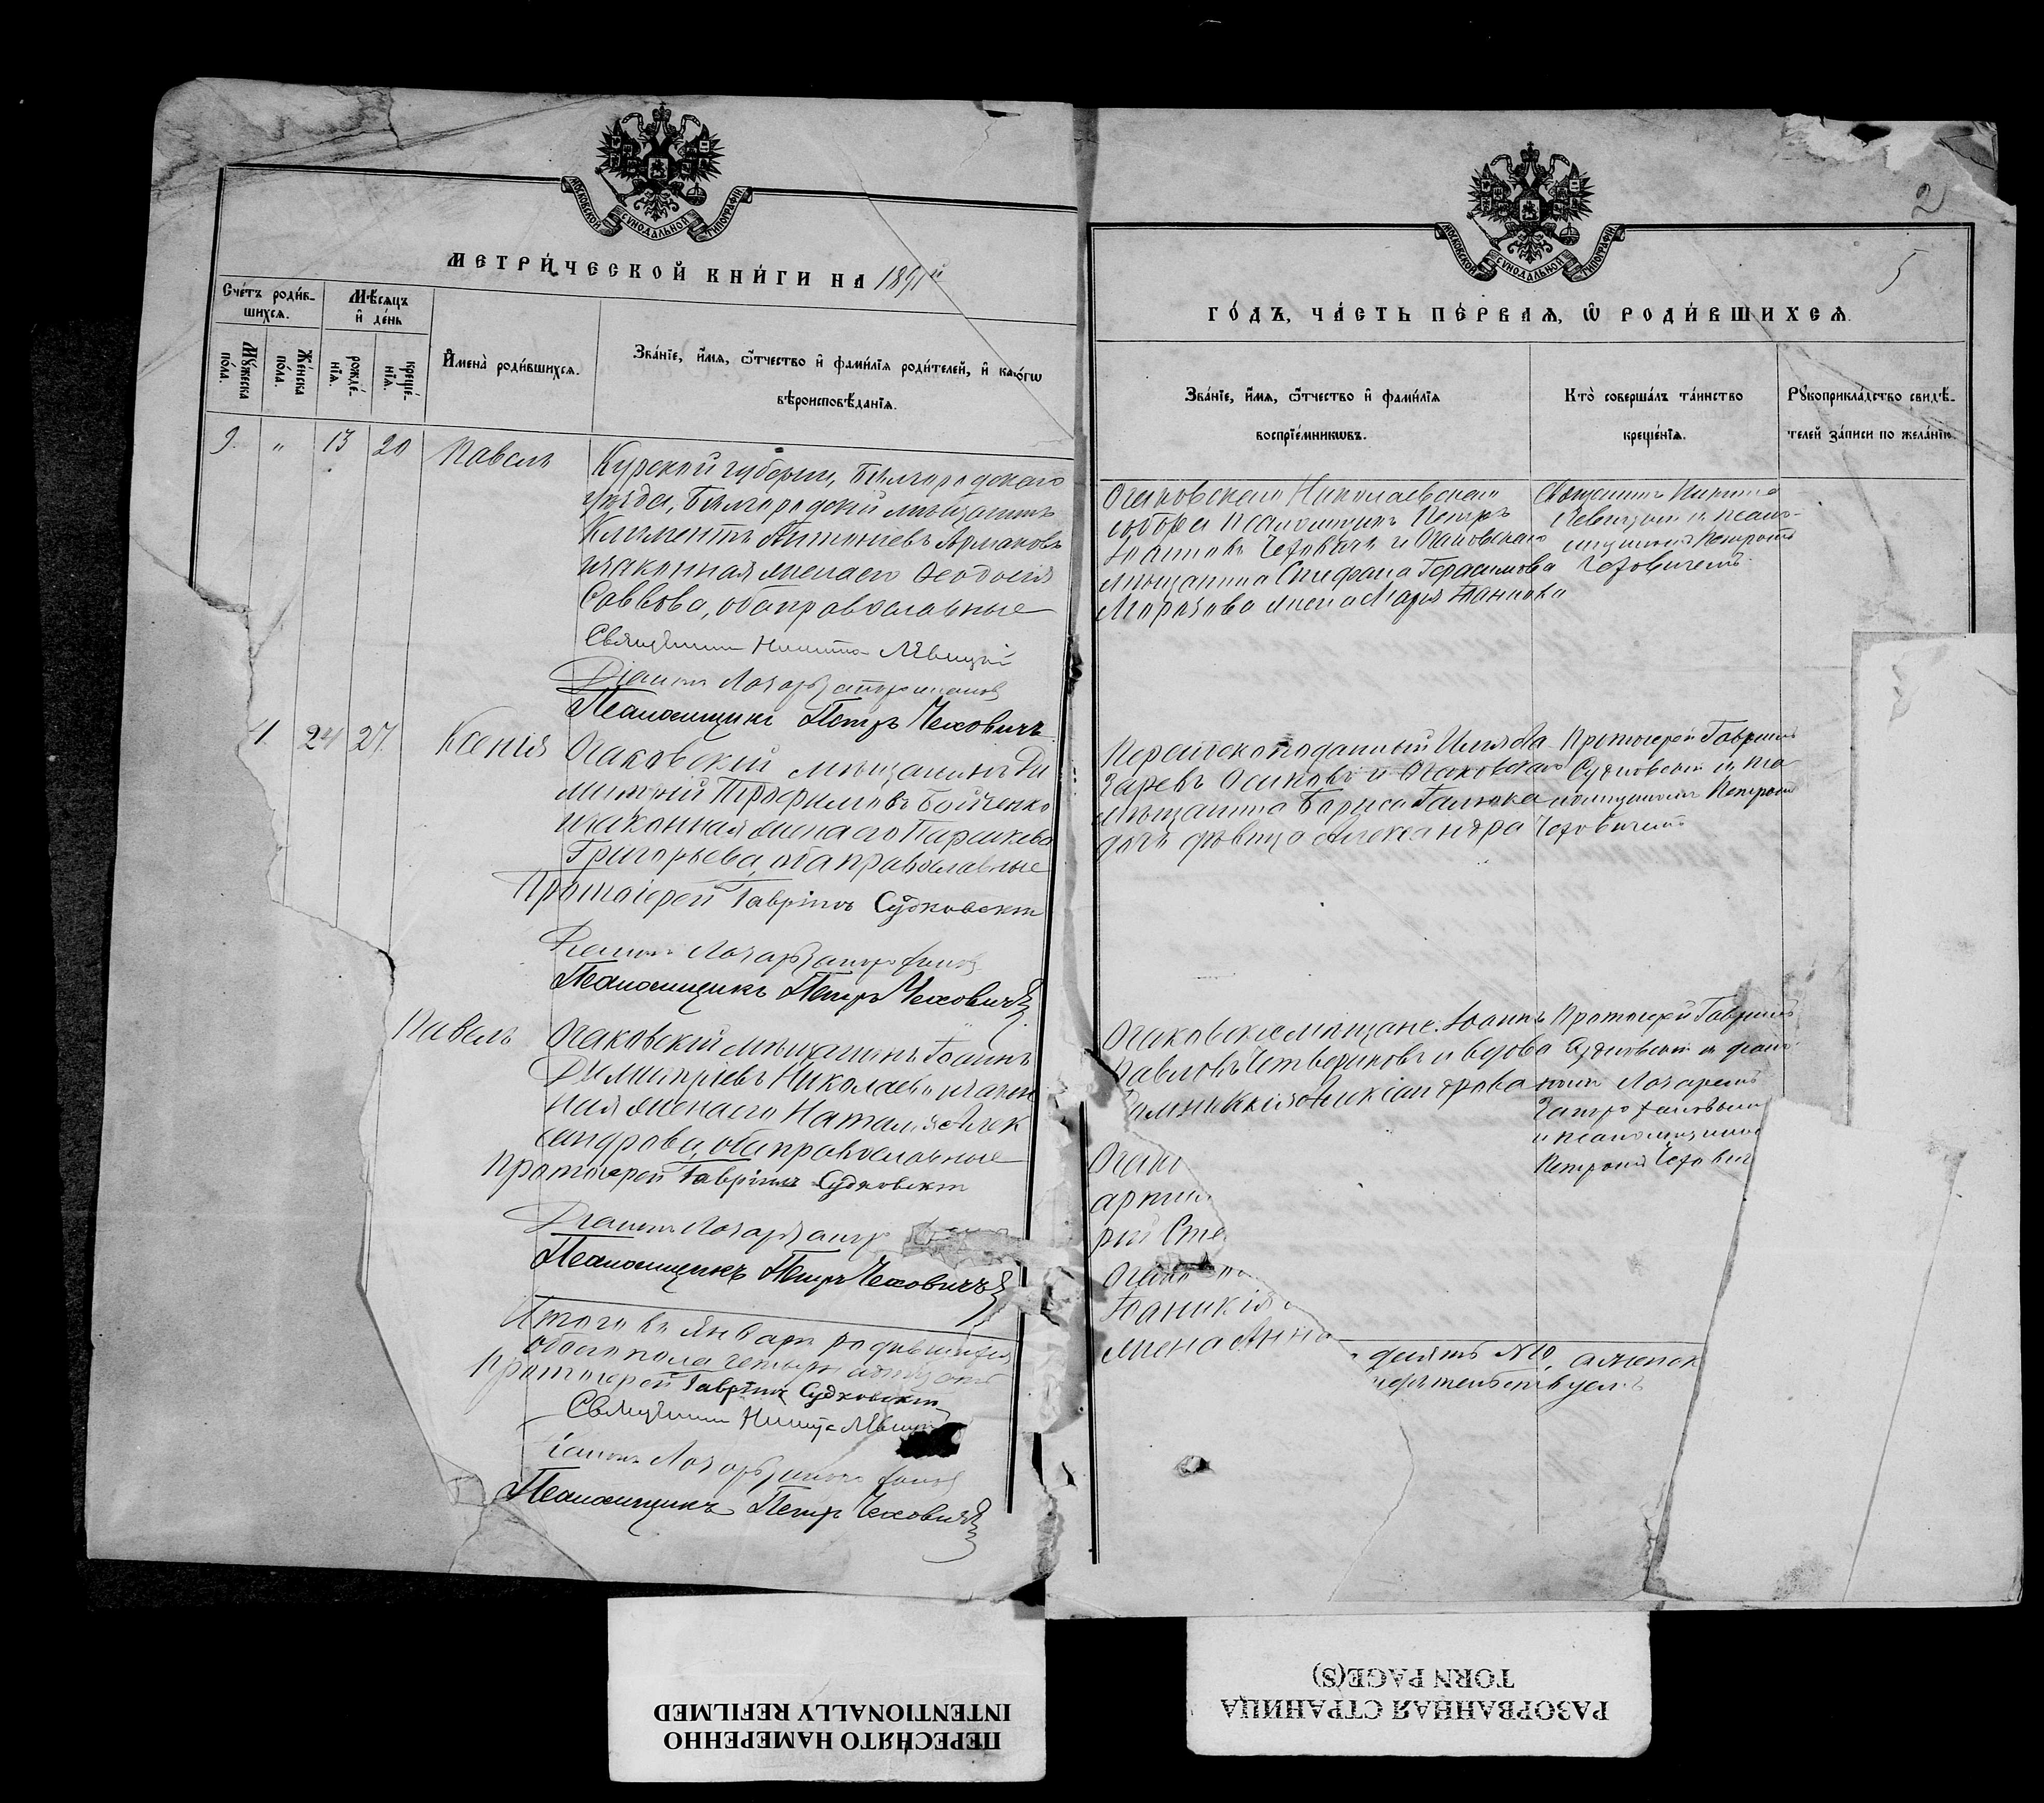 МОСКОВСКОЙ СѴНОДАЛЬНОЙ ТИПОГРАФІИ
МЕТРИ́ЧЕСКОЙ КНИ́ГИ НА 1891й
Сче́тъ роди́в-
шихсѧ.
Мѣ́сѧцъ
и҆ де́нь
Мꙋ́жеска
по́ла.
Же́нска
по́ла.
рожде́-
нїѧ.
креще́-
нїѧ.
И҆мена̀ роди́вшихсѧ.
Зва́нїе, и҆́мѧ, ѻ҆́тчество и҆ фами́лїѧ роди́телей, и҆ како́гѡ
вѣроисповѣ́данїѧ.
9. " 13 20 Павелъ
Курской губерніи, Бѣлгородскаго
уѣзда, Бѣлгородскій мѣщанинъ
Климентъ Антоніевъ Ярмаковъ
и законная жена его Ѳеодосія
Саввова, оба православные
Священникъ Никита Лѣвицкій
Діаконъ Лазарь
Псаломщикъ Петръ Чеховичъ
1. 24 27. Ксенія
Очаковскій мѣщанинъ Ди
митрій Бойченко
и законная жена его Параскева
Григорьева, оба православные
Протоіерей Гавріилъ Судковскій
Діаконъ Лазарь
Псаломщикъ Петръ Чеховичъ
Павелъ
Очаковскій мѣщанинъ Іоаннъ
Димитріевъ Николаевъ и закон
ная жена его Наталія Алек
сандрова, оба православные
Протоіерей Гавріилъ Судковскій
Діаконъ Лазарь
Псаломщикъ Петръ Чеховичъ
Итого въ Январѣ родившихся
обоего пола четырнадцать
Протоіерей Гавріилъ Судковскій
Священникъ Никита Лѣвицкій
Діаконъ Лазарь
Псаломщикъ Петръ Чеховичъ
2
5
МОСКОВСКОЙ СѴНОДАЛЬНОЙ ТИПОГРАФІИ
ГО́ДЪ, ЧА́СТЬ ПЕ́РВАѦ, Ѡ҆ РОДИ́ВШИХСѦ.
Зва́нїе, и҆́мѧ, ѻ҆́тчество и҆ фами́лїѧ
воспрїе́мникѡвъ.
Кто̀ соверша́лъ та́инство
креще́нїѧ.
Рꙋкоприкла́дство свидѣ́-
телей за́писи по жела́нїю.
Очаковскаго Николаевскаго
собора псаломщикъ Петръ
Іоанновъ Чеховичъ и Очаковскаго
мѣщанина Стефана Герасимова
Морозова жена Марія Іоаннова
Священникъ Никита
Левицкій и псало-
мщикъ Петромъ
Чеховичемъ.
Персидскоподанный Илія Ла
заревъ Осиповъ и Очаковскаго
мѣщанина Бориса
дочь дѣвица Александра
Протоіерей Гавріилъ
Судковскій и пса
ломщикомъ Петромъ
Чеховичемъ
Очаковскіе мѣщане: Іоаннъ
Павловъ Четвериковъ и вдова
Александрова
Протоіерей Гавріилъ
Судковскій и діако
номъ Лазаремъ
и псаломщикомъ
Петромъ Чехович
Очако
рій Сте
Іоаникія
жена Анна
девять №10, а женск
ПЕРЕСНЯТО НАМЕРЕННО
INTENTIONALLY REFILMED
РАЗОРВАННАЯ СТРАНИЦА
TORN PAGE(S)